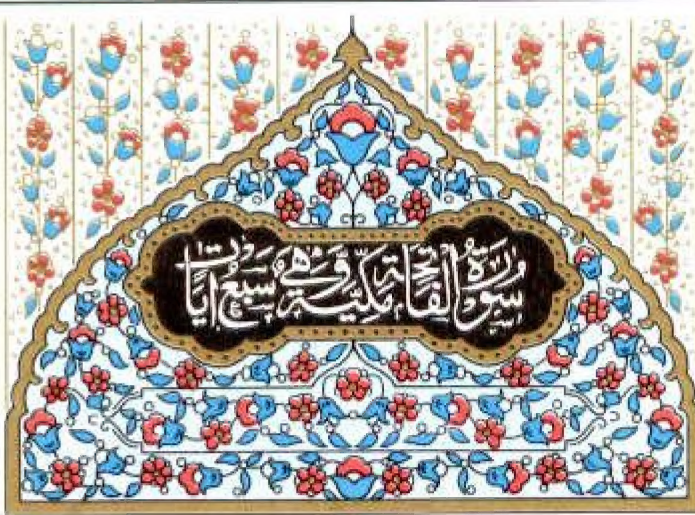 سورة الفاتحة مكية وهي سبع ايات